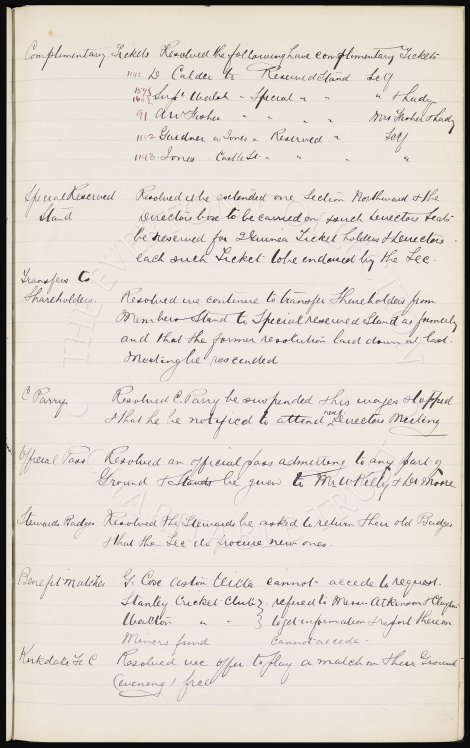 Complimentary Tickets Resolved the following have complimentary Tickets
1142 D Calder to Reserved Stand Self
Supt Walsh " Special " " " & Lady
91 A W Fisher " " " " Mrs Fisher & Lady
1102 Gardner W Jones " Reserved " Self
1143 Jones Castle St " " " "
Special Reserved Resolved it be extended one Section Northward & the
Stand Directors box to be carried on, such Directors Seats
be reserved for 2 Guinea Ticket holders & Directors
each such Ticket to be endorsed by the Sec.
Transfers to
Shareholders. Resolved we continue to transfer Shareholders from
Members Stand to Special reserved Stand as formerly
and that the former resolution laid down at last
Meeting be rescinded
C Parry. Resolved C. Parry be suspended & his wages stopped
& that he be notified to attend next Directors Meeting
Official Pass Resolved an official pass admitting to any part of
Ground & Stands be given to Mr W Kelly & Dr Moore
Stewards Badges Resolved the Stewards be asked to return their old Badges
& that the Sec do procure new ones.
Benefit Matches G. Cox Aston Villa cannot accede to request.
Stanley Cricket Club } refered to Messrs Atkinson & Clayton
Walton " " } to get information & report thereon
Miners fund cannot accede
Kirkdale F C Resolved we offer to play a match on their Ground
(evening) free